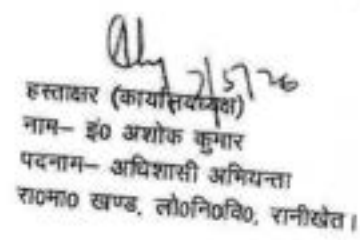 7/5/26
हस्ताक्षर (कार्यालयाध्यक्ष)
नाम– इं0 अशोक कुमार
पदनाम– अधिशासी अभियन्ता
रा0मा0 खण्ड, लो0नि0वि0, रानीखेत।